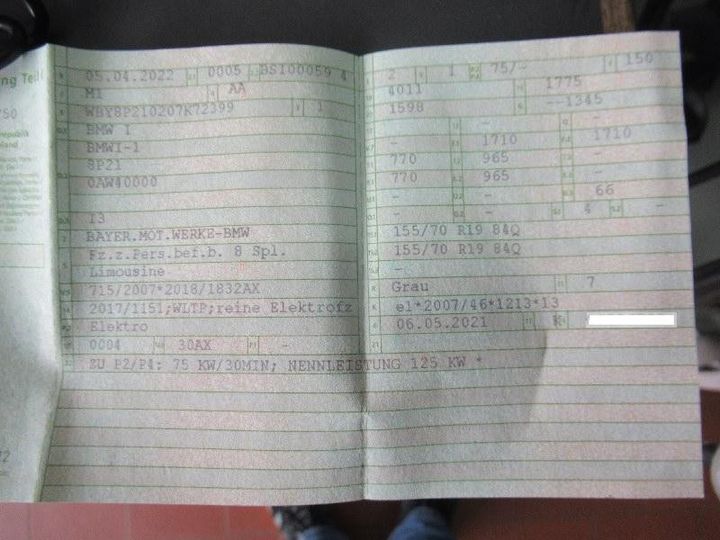 ng Teil
750
05.04.2022 0005 BS100059 4
M1 AA
WBY8P210207K72399 1
BMW I
BMWI-1
8P21
0AW40000
I3
BAYER.MOT.WERKE-BMW
Fz.z.Pers.bef.b. 8 Spl.
Limousine
715/2007*2018/1832AX
2017/1151;WLTP;reine Elektrofz
Elektro
0004 30AX -
ZU P2/P4: 75 KW/30MIN; NENNLEISTUNG 125 KW *
2 1 75/- 150
4011 1775
1598 --1345
- -
- 1710 1710
770 965 -
770 965 -
- - 66
- - 4 -
155/70 R19 84Q
155/70 R19 84Q
-
Grau 7
e1*2007/46*1213*13
06.05.2021 K